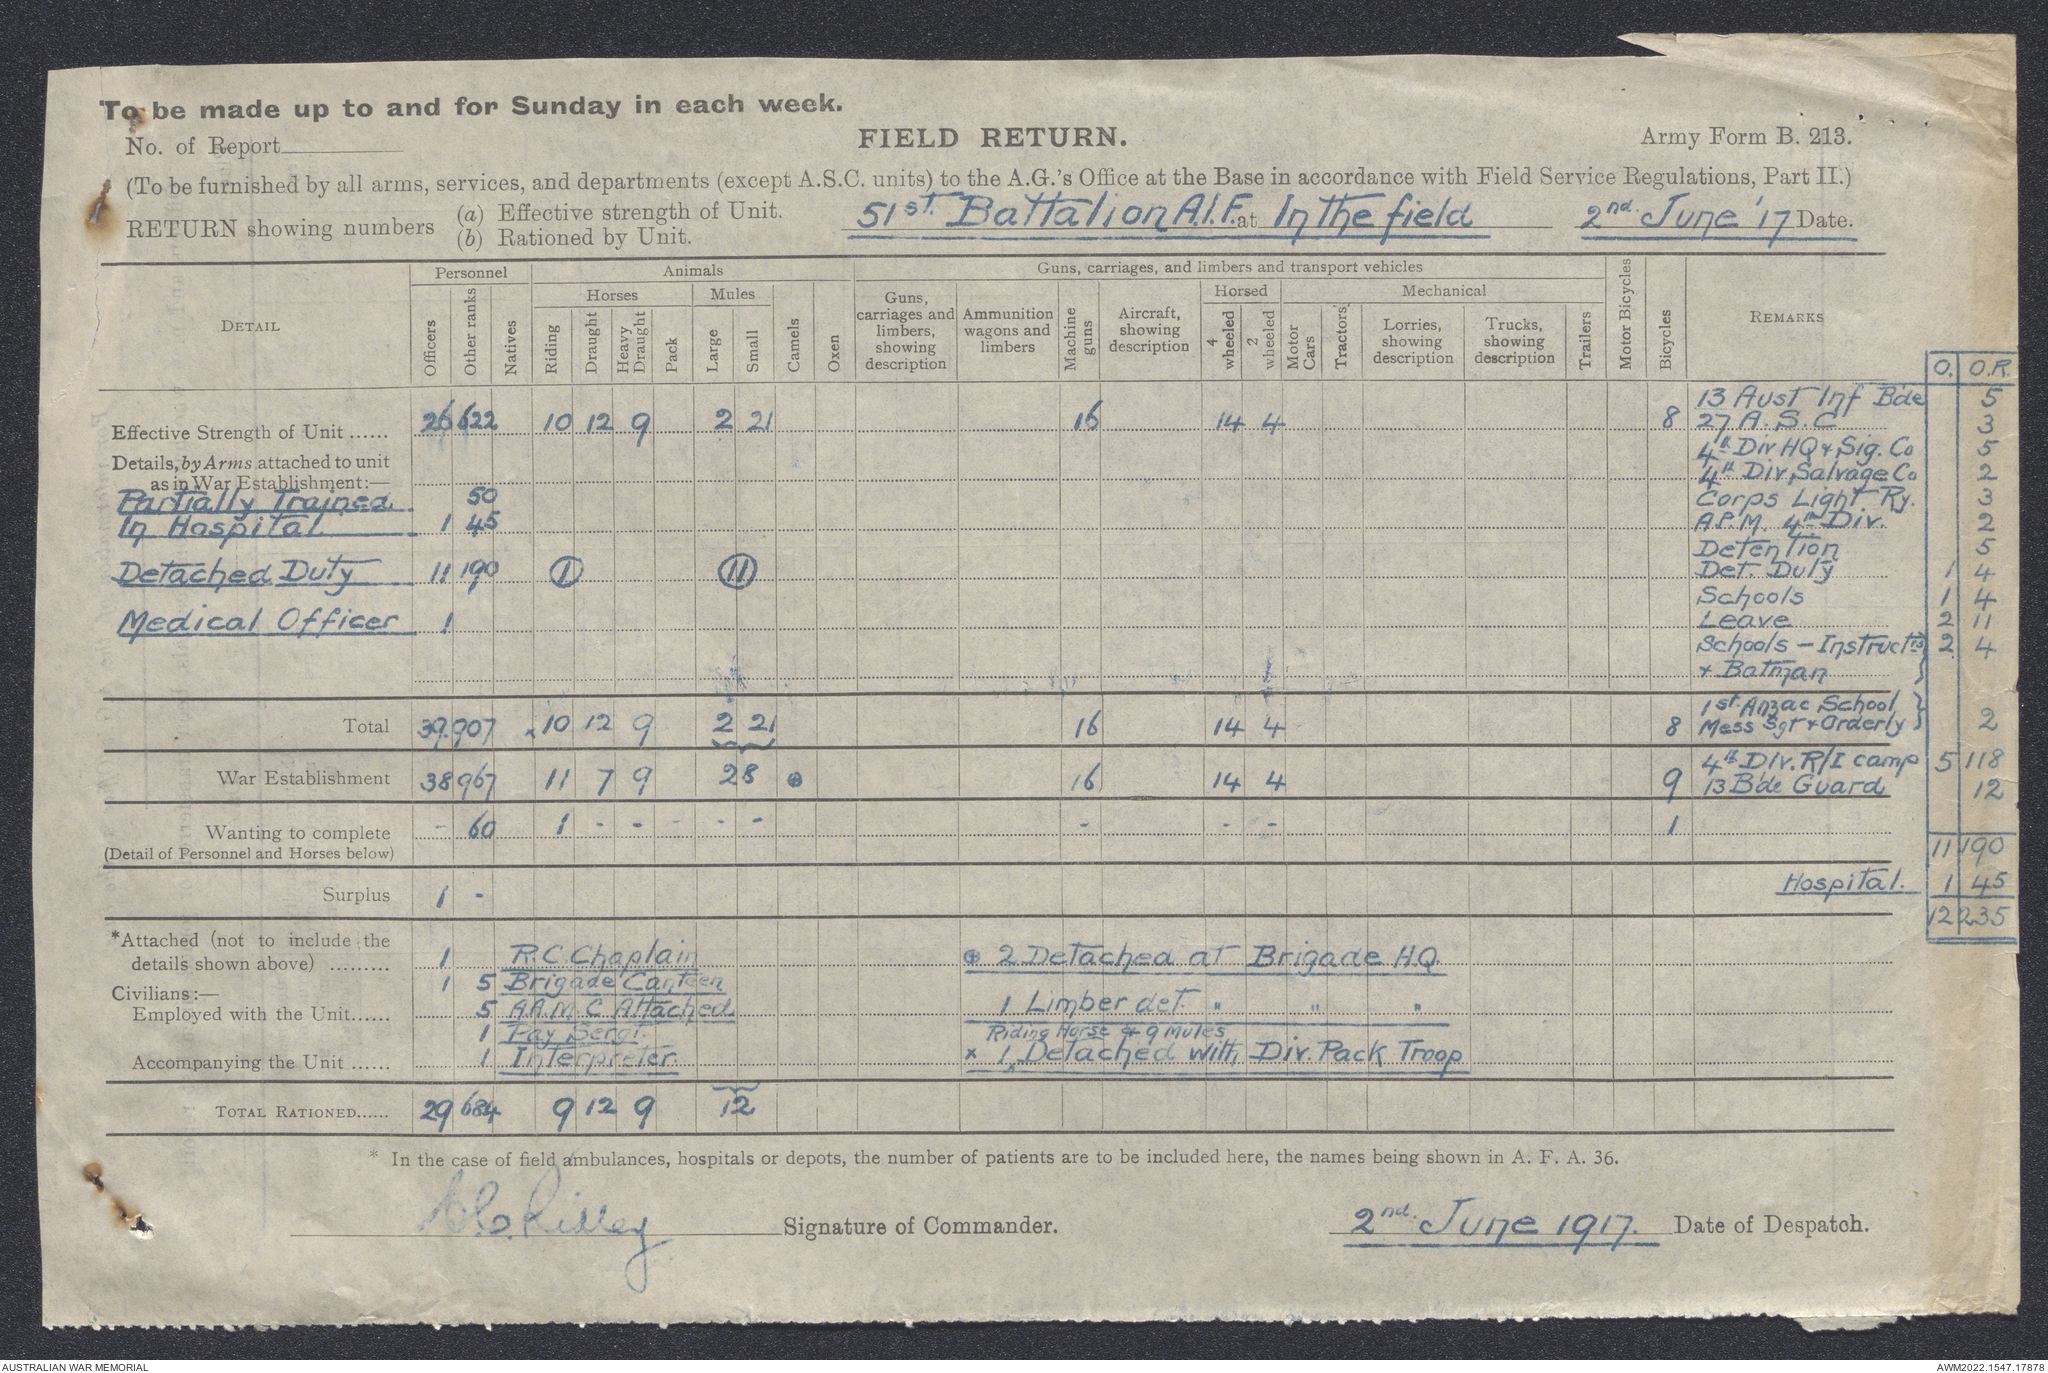 To be made up to and for Sunday in each week.
No. of Report
FIELD RETURN.
Army Form B. 213.
(To be furnished by all arms, services, and departments (except A.S.C. units) to the A.G.'s Office at the Base in accordance with Field Service Regulations, Part II.)
RETURN showing numbers
(a) Effective strength of Unit.
(b) Rationed by Unit.
51st. Battalion A.I.F. at In the field 2nd. June '17 Date.
DETAIL
Personnel
Animals
Guns, carriages, and limbers and transport vehicles
Horses
Mules
Horsed
Mechanical
Officers
Other ranks
Natives
Riding
Draught
Heavy Draught
Pack
Large
Small
Camels
Oxen
Guns, carriages and limbers, showing description
Ammunition wagons and limbers
Machine guns
Aircraft, showing description
4 wheeled
2 wheeled
Motor Cars
Tractors
Lorries, showing description
Trucks, showing description
Trailers
Motor Bicycles
Bicycles
REMARKS
O. O.R.
Effective Strength of Unit...... 26 622 10 12 9 2 21 16 14 4 8
13 Aust Inf Bde 5
27 A.S.C 3
Details, by Arms attached to unit
as in War Establishment:—
4th Div HQ & Sig. Co 5
4th Div. Salvage Co 2
Partially Trained 50
Corps Light Ry. 3
In Hospital 1 45
A.P.M. 4th Div. 2
Detention 5
Detached Duty 11 190 1 11
Det. Duty 1 4
Schools 1 4
Medical Officer 1
Leave 2 11
Schools - Instructrs 2 4
+ Batman
Total 39 907 x 10 12 9 2 21 16 14 4 8
1st Anzac School
Mess Sgt & Orderly 2
War Establishment 38 967 11 7 9 28 16 14 4 9
4th Div. R/I camp 5 118
13 Bde Guard 12
Wanting to complete - 60 1 - - - - - - - - 1
(Detail of Personnel and Horses below)
11 190
Surplus 1 -
Hospital. 1 45
12 235
*Attached (not to include the
details shown above) ......... 1 R.C. Chaplain
2 Detached at Brigade H.Q
1 5 Brigade Canteen
Civilians:—
Employed with the Unit...... 5 A.A.M.C Attached
1 Limber det. " " "
1 Pay Sergt
Riding Horse & 9 Mules
Accompanying the Unit ...... 1 Interpreter.
x 1 Detached with Div. Pack Troop
TOTAL RATIONED...... 29 684 9 12 9 12
* In the case of field ambulances, hospitals or depots, the number of patients are to be included here, the names being shown in A. F. A. 36.
Ridley Signature of Commander.
2nd. June 1917. Date of Despatch.
AUSTRALIAN WAR MEMORIAL
AWM2022.1547.17878